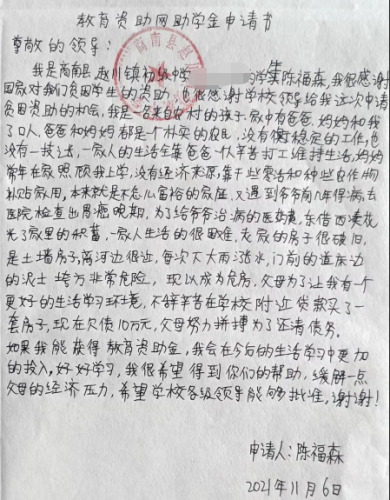 教育资助网助学金申请书
尊敬的领导:
我是商南县赵川镇初级中学 的学生陈福森,我很感谢
国家对我们贫困学生的资助,也很感谢学校领导给我这次申请
贫困资助的机会,我是一名来自农村的孩子,家中有爸爸、妈妈和我
了口人,爸爸和妈妈都是个朴实的农民,没有稳定的工作,也
没有一技之长,一家人的生活全集爸爸一个人辛苦打工维持生活,妈妈
常年在家照顾我上学,没有经济来源,靠干些零活和种些农作物
补贴家用,本来就是不怎么富裕的家庭,又遇到爷爷前几年得病,去
医院检查出胃癌晚期,为了给爷爷治病的医药费,东借西凑花
光了家里的积蓄,一家人生活的很困难,老家的房子很破旧,
是土墙房子,离河边很近,每次下大雨涨水,门前的道底边
的泥土垮方非常危险,现以成为危房,父母为了让我有个
更好的生活学习环境,不辞辛苦在学校附近贷款买了一
套房子,现在欠债10万元,父母努力拼搏为了还清债务。
如果我能获得教育资助金,我会在今后的生活学习中更加
的投入,好好学习,我很希望得到你们的帮助,缓解一点
父母的经济压力,希望学校各级领导能够批准,谢谢!
申请人:陈福森
2021年11月6日
商南县赵